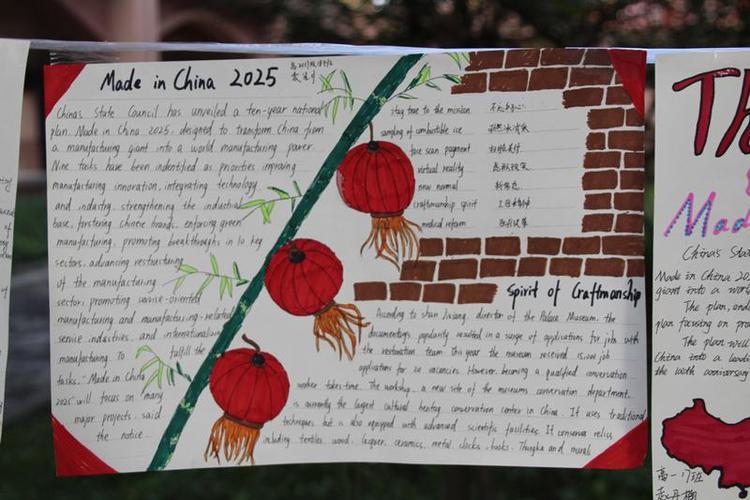 Made in China 2025
China's State Council has unveiled a ten-year national
plan, Made in China 2025, designed to transform China from
a manufacturing giant into a world manufacturing power.
Nine tasks have been indentified as priorities improving
manufacturing innovation, integrating technology
and industry, strengthening the industrial
base, forstering chinese brands, enforcing green
manufacturing, promoting breakthroughs in 10 key
sectors, advancing restructuring
of the manufacturing
sector, promoting service-oriented
manufacturing and manufacturing-related
service industries, and internationalizing
manufacturing. To fulfill the
tasks, "Made in China
2025" will focus on many
major projects, said
the notice.
stay true to the mission 不忘初心
sampling of combustible ice
face scan payment
virtual reality 虚拟现实
new normal 新常态
craftsmanship spirit 工匠精神
medical reform
Spirit of Craftmanship
According to shan Jixiang, director of the Palace Museum, the
documentary's popularity resulted in a range of applications for jobs with
the restoration team. This year the museum received
applications for 20 vacancies. However, becoming a qualified conservation
worker takes time. The workshop, a new site of the museum's conservation department,
is currently the largest cultural heritag conservation center in China. It uses traditional
techniques but is also equipped with advanced scientific facilities. It conserves relics
including textiles, wood, lacquer, ceramics, metal, clocks, books, Thangka and murals
Th
Mad
China's Sta
Made in China 202
giant into a world
The plan, end
plan focusing on pro
The plan will
China into a leadi
the 100th anniversary
高一17班